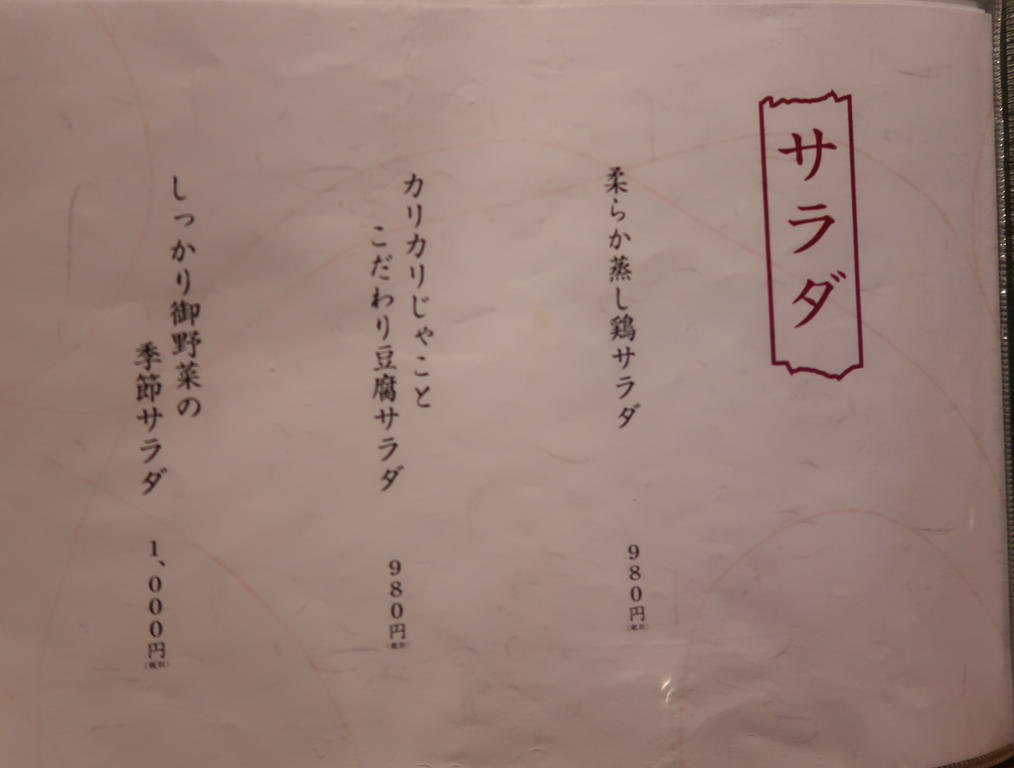 サラダ
柔らか蒸し鶏サラダ
980円
(税別)
カリカリじゃこと
こだわり豆腐サラダ
980円
(税別)
しっかり御野菜の
季節サラダ
1,000円
(税別)